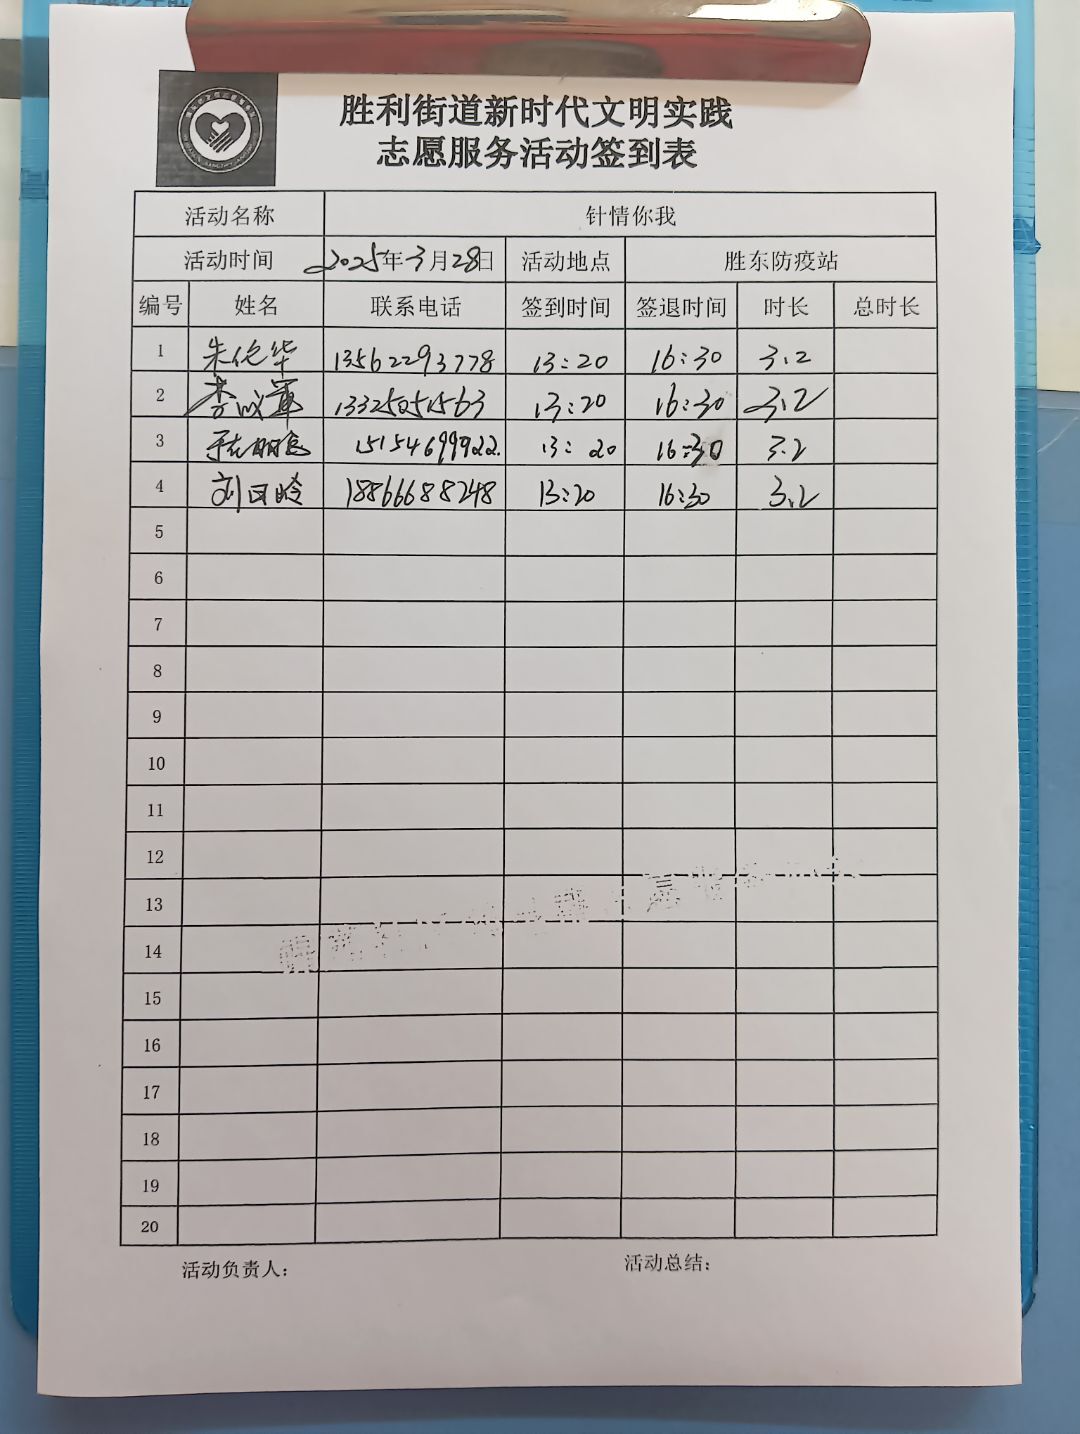 胜利街道新时代文明实践
志愿服务活动签到表
活动名称 针情你我
活动时间 2025年3月28日 活动地点 胜东防疫站
编号 姓名 联系电话 签到时间 签退时间 时长 总时长
1 朱伦华 13562293778 13:20 16:30 3.2
2 李成军 13325051563 13:20 16:30 3.2
3 15154699922. 13:20 16:30 3.2
4 刘 18866688248 13:20 16:30 3.2
5
6
7
8
9
10
11
12
13
14
15
16
17
18
19
20
活动负责人: 活动总结: